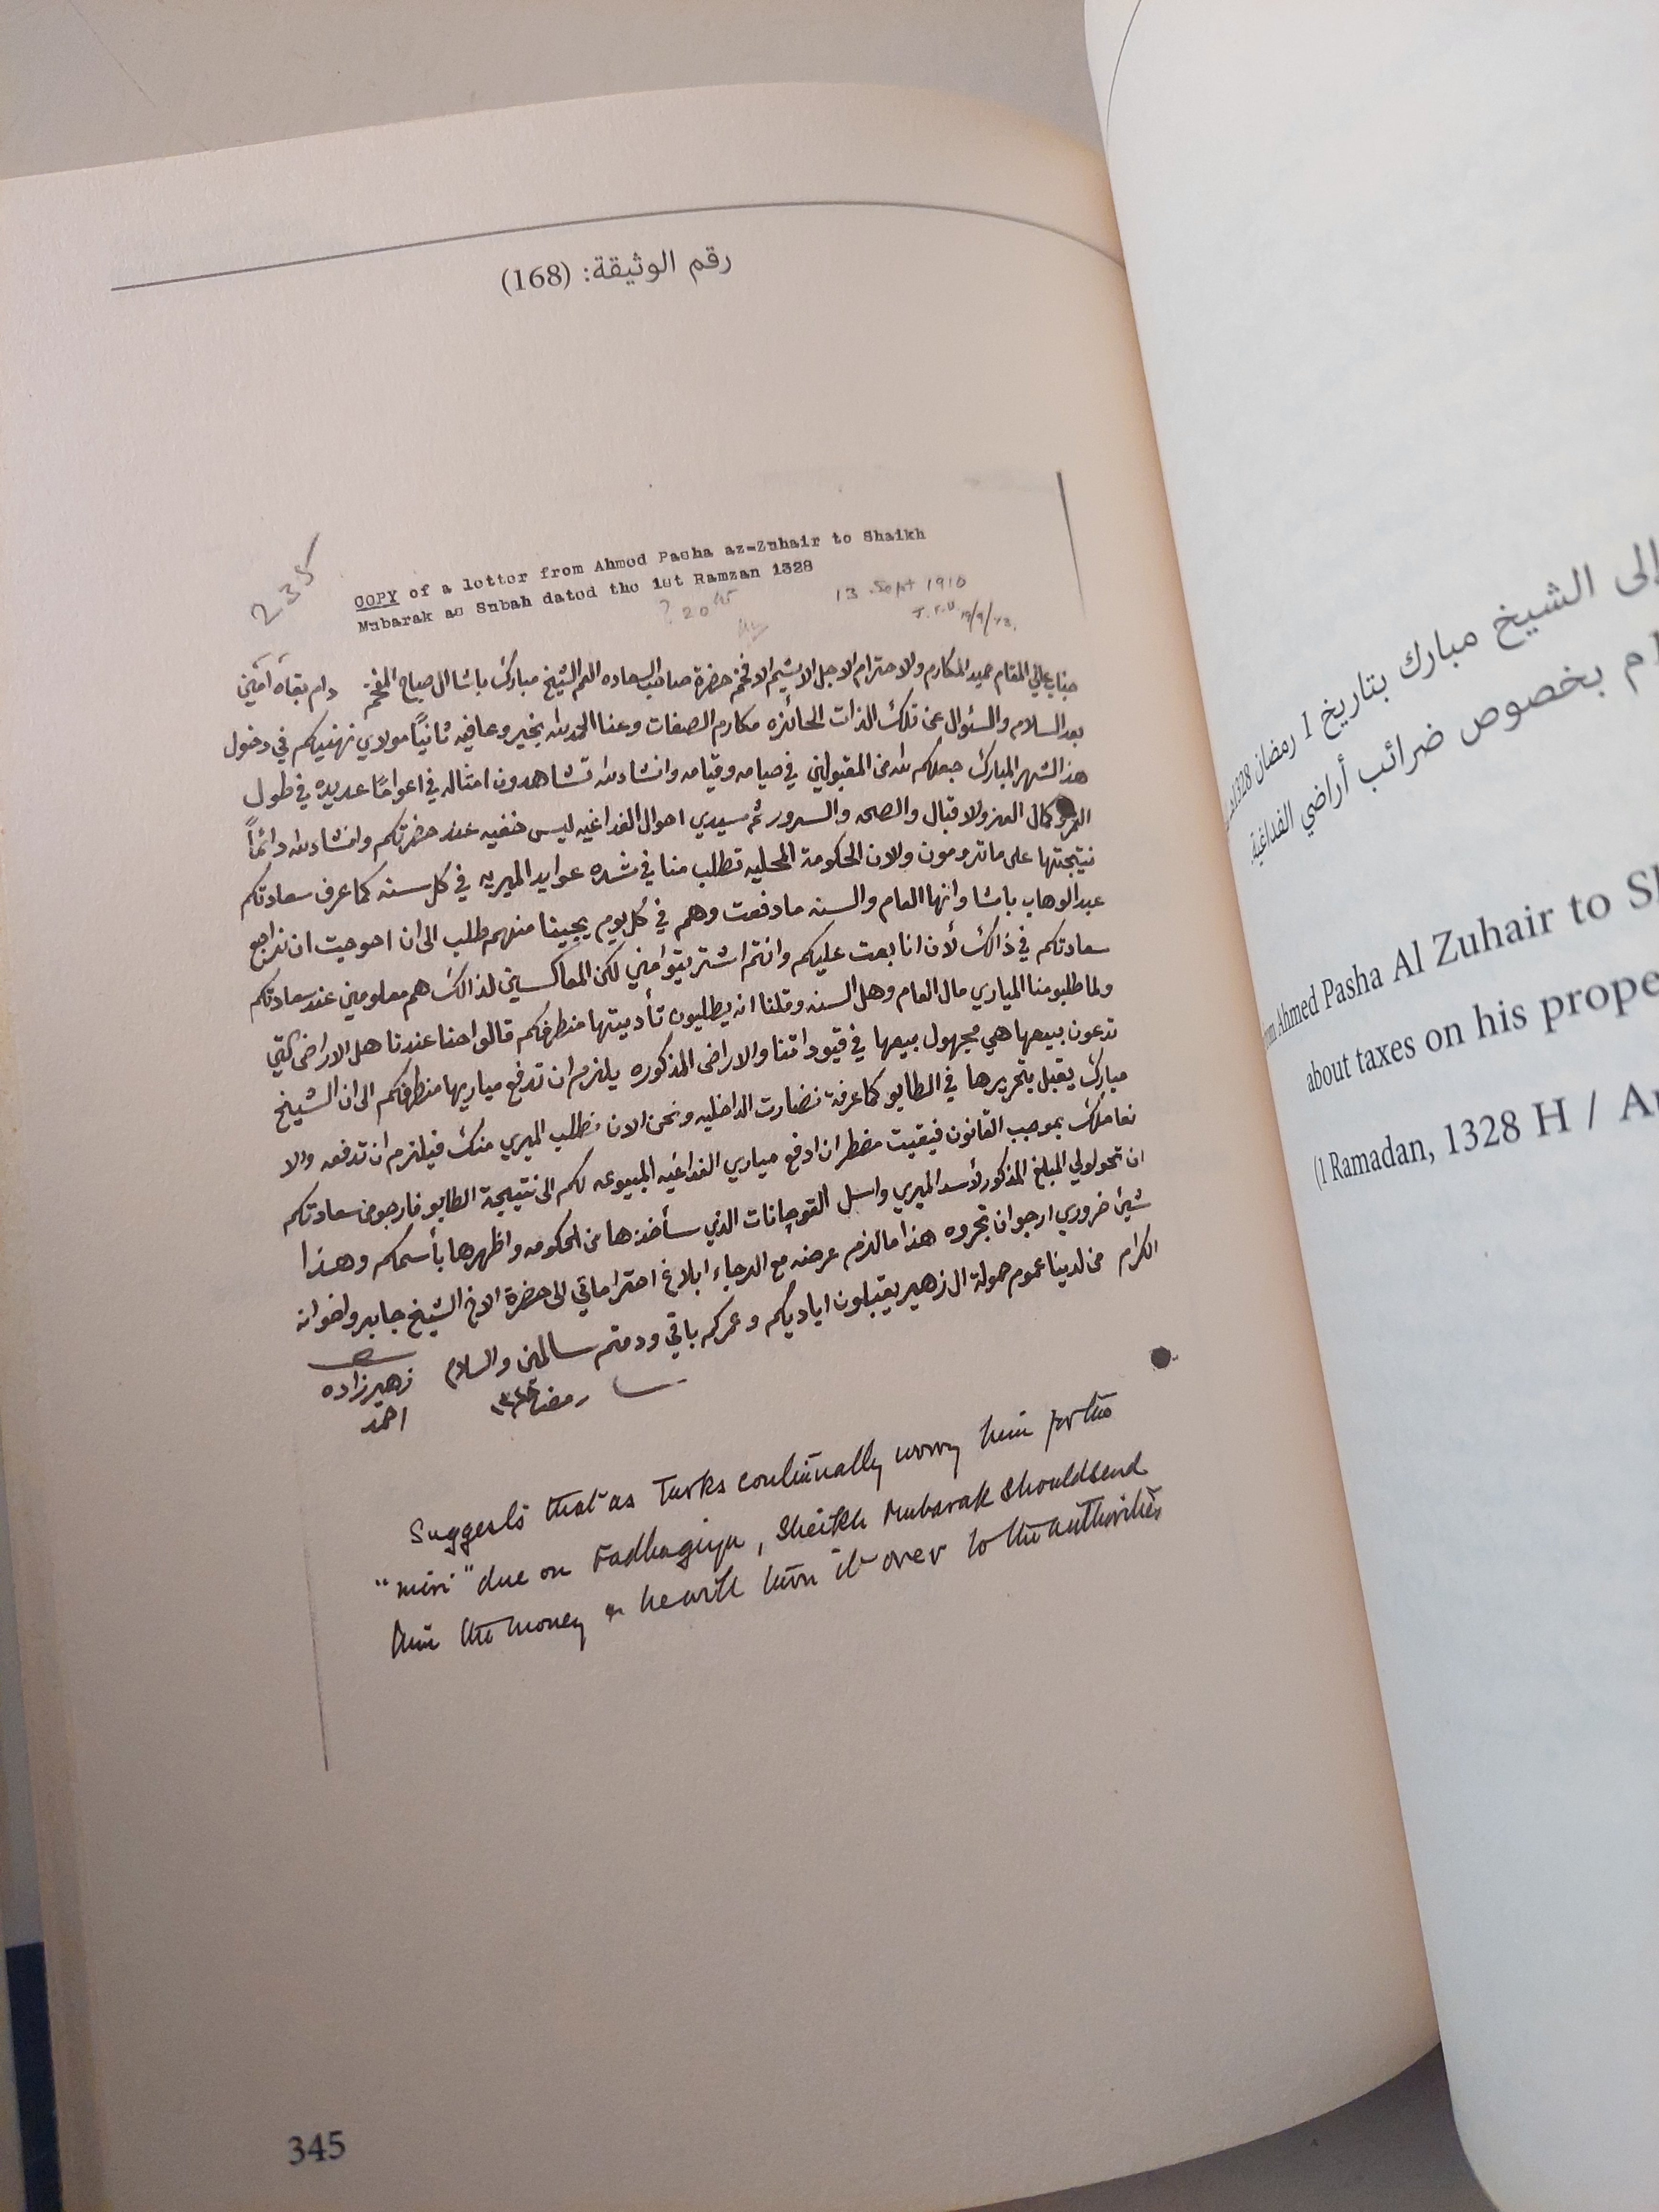 رقم الوثيقة: (168)
235
COPY of a letter from Ahmed Pasha az-Zuhair to Shaikh
Mubarak as Subah dated the 1st Ramzan 1328
? 20
13 Sept 1910
جناب عالي المقام حميد المكارم والاحترام الاجل الاشيم الافخم حضرة صاحب السعاده الشيخ مبارك باشا ال صباح المفخم دام بقاه آمين
بعد السلام والسئوال عن تلك الذات الحائزه مكارم الصفات وعنا الحمد لله بخير وعافيه ثانياً مولاي نهنيكم في دخول
هذا الشهر المبارك جعلكم الله من المقبولين في صيامه وقيامه وانشاء الله تشاهدون امثاله في اعواماً عديده في طول
العمر وكمال العز والاقبال والصحه والسرور ثم سيدي احوال الفداغيه ليس خفيه عند حضرتكم وانشاء الله دائماً
نتيجتها على ما ترومون والان الحكومة المحليه تطلب منا في شده عوايد الميريه في كل سنه كما عرف سعادتكم
عبد الوهاب باشا وانها العام والسنه ما دفعت وهم في كل يوم يجيبنا منهم طلب الى ان احوجت ان نراجع
سعادتكم في ذالك لأن انا بعت عليكم وانتم اشتريتوا مني لكن المعاكسين لذالك هم معلومين عند سعادتكم
ولما طلبو منا المياري مال العام وهل السنه وقلنا انه يطلبون تأديتها من طرفكم قالوا احنا عندنا هل الاراضي التي
تدعون بيعها هي مجهول بيعها في قيوداتنا والاراضي المذكوره يلزم ان تدفع مياريها من طرفكم الى ان الشيخ
مبارك يقبل بتحريرها في الطابو كما عرفة نضارت الداخليه ونحن الان نطلب الميري منك فيلزم ان تدفعه والا
نعاملك بموجب القانون فبقيت مضطر ان ادفع مياري الفداغيه المبيوعه لكم الى نتيجة الطابو فارجو من سعادتكم
ان تحولولي المبلغ المذكور لأسد الميري واسل القوچانات الذي سأخذها من الحكومه واظهرها بأسمكم وهذا
شيئ ضروري ارجو ان تجروه هذا ما لزم عرضه مع الرجاء ابلاغ احتراماتي الى حضرة الاخ الشيخ جابر واخوانه
الكرام من لدينا عموم حمولة ال زهير يقبلون اياديكم وعمركم باقي ودمتم سالمين والسلام
رمضان
زهير زاده
احمد
Suggests that as Turks continually worry him for the
"miri" due on Fadhagiya, Sheikh Mubarak should send
him the money & he will turn it over to the authorities
345
إلى الشيخ مبارك بتاريخ 1 رمضان 1328
بخصوص ضرائب أراضي الفداغية
Ahmed Pasha Al Zuhair to
about taxes on his
(1 Ramadan, 1328 H /